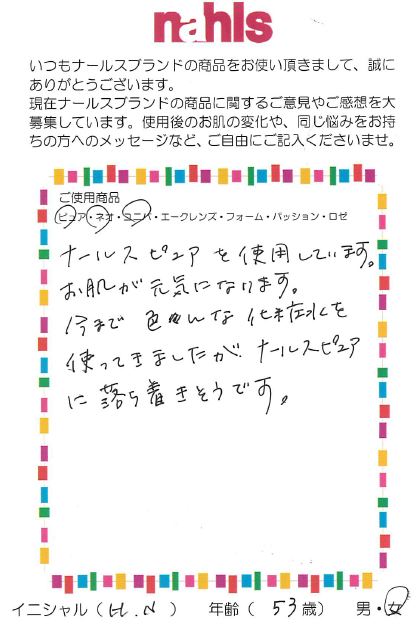 nahls
いつもナールスブランドの商品をお使い頂きまして、誠に
ありがとうございます。
現在ナールスブランドの商品に関するご意見やご感想を大
募集しています。使用後のお肌の変化や、同じ悩みをお持
ちの方へのメッセージなど、ご自由にご記入くださいませ。
ご使用商品
ピュア・ネオ・ユニバ・エークレンズ・フォーム・パッション・ロゼ
ナールスピュアを使用しています。
お肌が元気になります。
今まで色々んな化粧水を
使ってきましたが ナールスピュア
に落ち着きそうです。
イニシャル( H.N ) 年齢( 53歳) 男・女